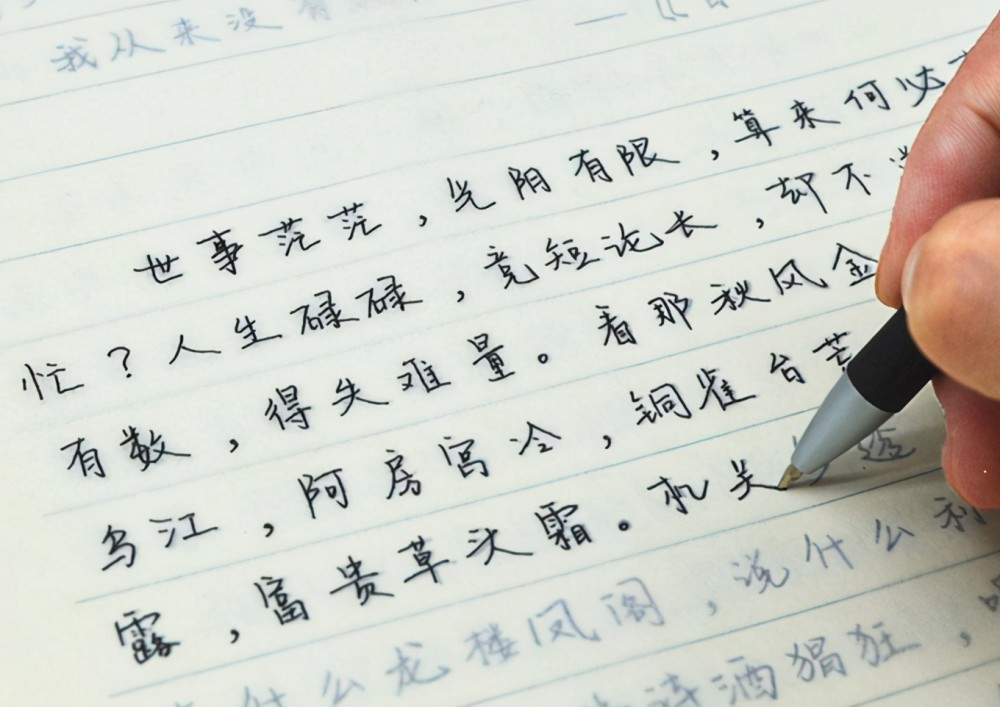 我从来没有
世事茫茫，光阴有限，算来何必
忙？人生碌碌，竞短论长，却不
有数，得失难量。看那秋风金
乌江，阿房宫冷，铜雀台荒
露，富贵草头霜。机关透
什么龙楼凤阁，说什么利
诗酒猖狂，